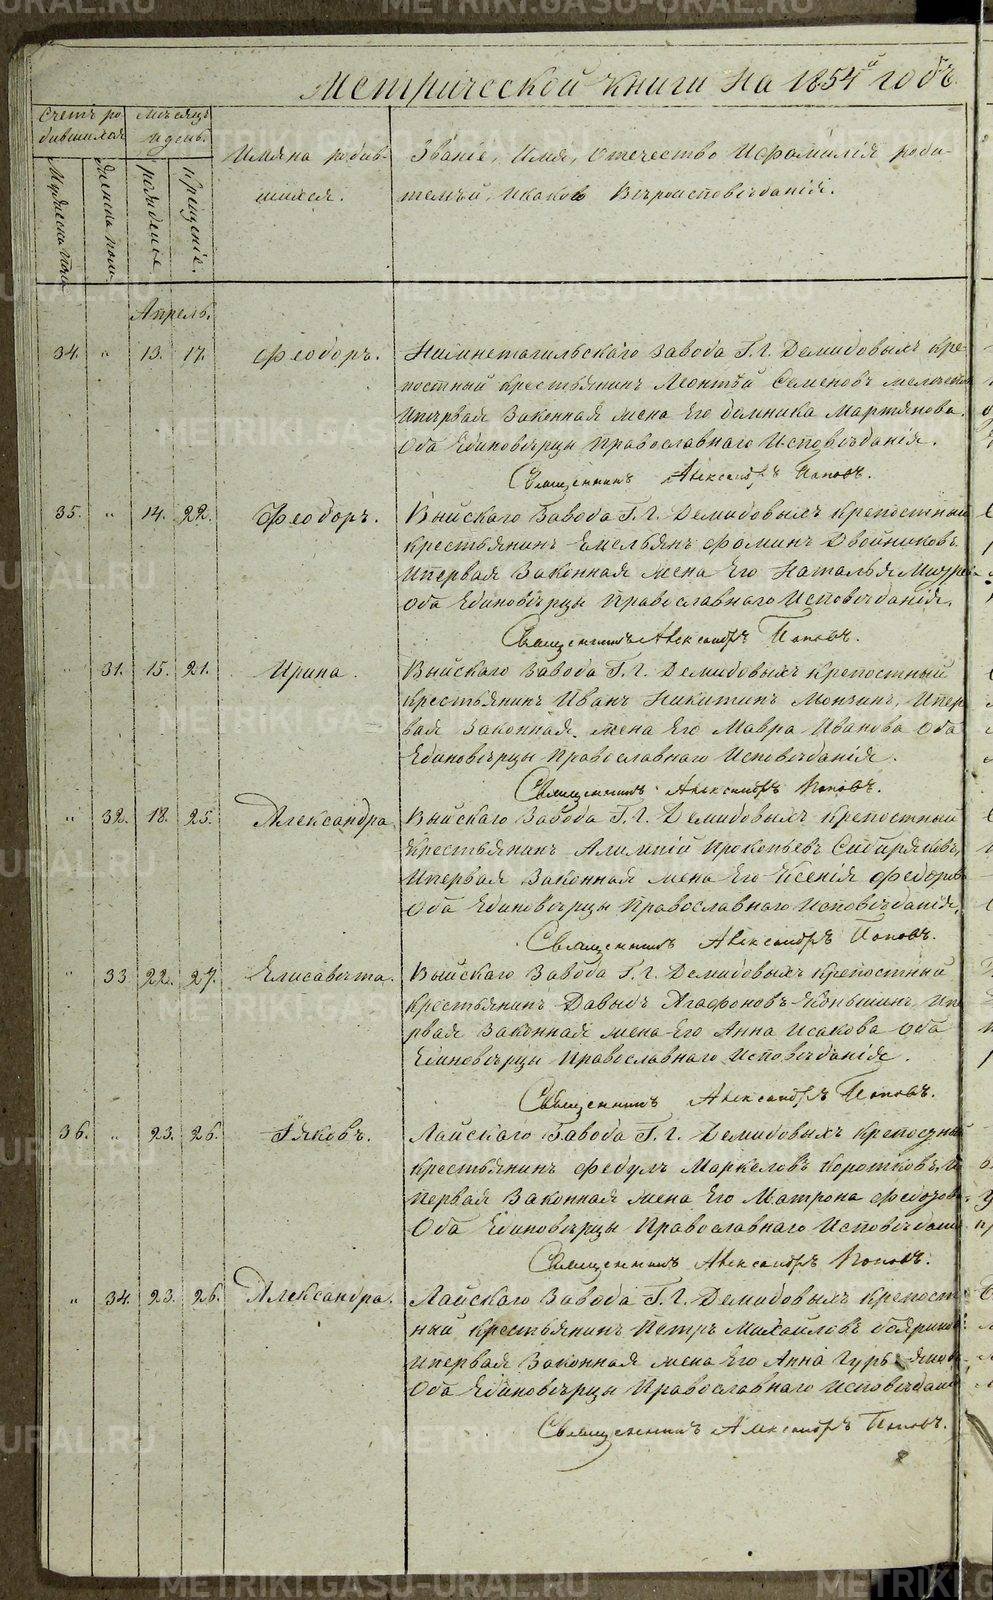 Метрической книги на 1854й годъ.
Счетъ ро-
дившихся
Мѣсяцъ
и день.
Имяна родив-
шихся.
Званіе, Имя, Отечество и фамилія роди-
телѣй, и какого вѣроисповѣданія.
Мужеска пола
Женска пола
рожденіе
крещеніе.
Апрель.
34. " 13. 17. Феодоръ. Нижнетагильскаго завода Г.г. Демидовыхъ кре-
постный крестьянинъ Леонтій Семеновъ
и первая законная жена его домника Мартянова.
Оба Единовѣрцы Православнаго Исповѣданія.
Священникъ Александръ Поповъ.
35. " 14. 22. Феодоръ. Выйскаго Завода Г.г. Демидовыхъ крепостный
крестьянинъ Емельянъ фоминъ Двойниковъ
и первая Законная жена Его Наталья
Оба Единовѣрцы Православнаго Исповѣданія.
Священникъ Александръ Поповъ.
" 31. 15. 21. Ирина. Выйскаго Завода Г.г. Демидовыхъ крепостный
крестьянинъ Иванъ Никитинъ Монзинъ, И пер
вая Законная жена Его Мавра Иванова Оба
Единовѣрцы Православнаго Исповѣданія.
Священникъ Александръ Поповъ.
" 32. 18. 25. Александра Выйскаго Завода Г.г. Демидовыхъ крепостный
крестьянинъ Алимпій Прокопьевъ Сибиряковъ,
И первая Законная жена Его Ксенія Федоров
Оба Единовѣрцы Православнаго Исповѣданія,
Священникъ Александръ Поповъ.
" 33. 22. 27. Елисавѣта. Выйскаго Завода Г.г. Демидовыхъ крепостный
крестьянинъ Давыдъ Агафоновъ И пе
рвая Законная жена Его Анна Исакова Оба
Единовѣрцы Православнаго Исповѣданія.
Священникъ Александръ Поповъ.
36. " 23. 26. Іяковъ. Лайскаго Завода Г.г. Демидовыхъ крепостный
крестьянинъ Федулъ Маркеловъ Коротковъ, И
первая Законная жена Его Матрона Федоров
Оба Единовѣрцы Православнаго Исповѣдані
Священникъ Александръ Поповъ.
" 34. 23. 26. Александра. Лайскаго Завода Г.г. Демидовыхъ крепост
ный крестьянинъ Петръ Михайловъ
И первая Законная жена Его Анна
Оба Единовѣрцы Православнаго Исповѣдані
Священникъ Александръ Поповъ.
METRIKI.GASO-URAL.RU